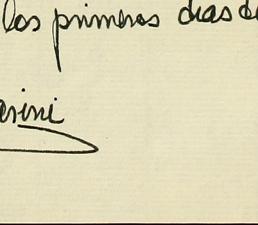 los primeros dias de
arini